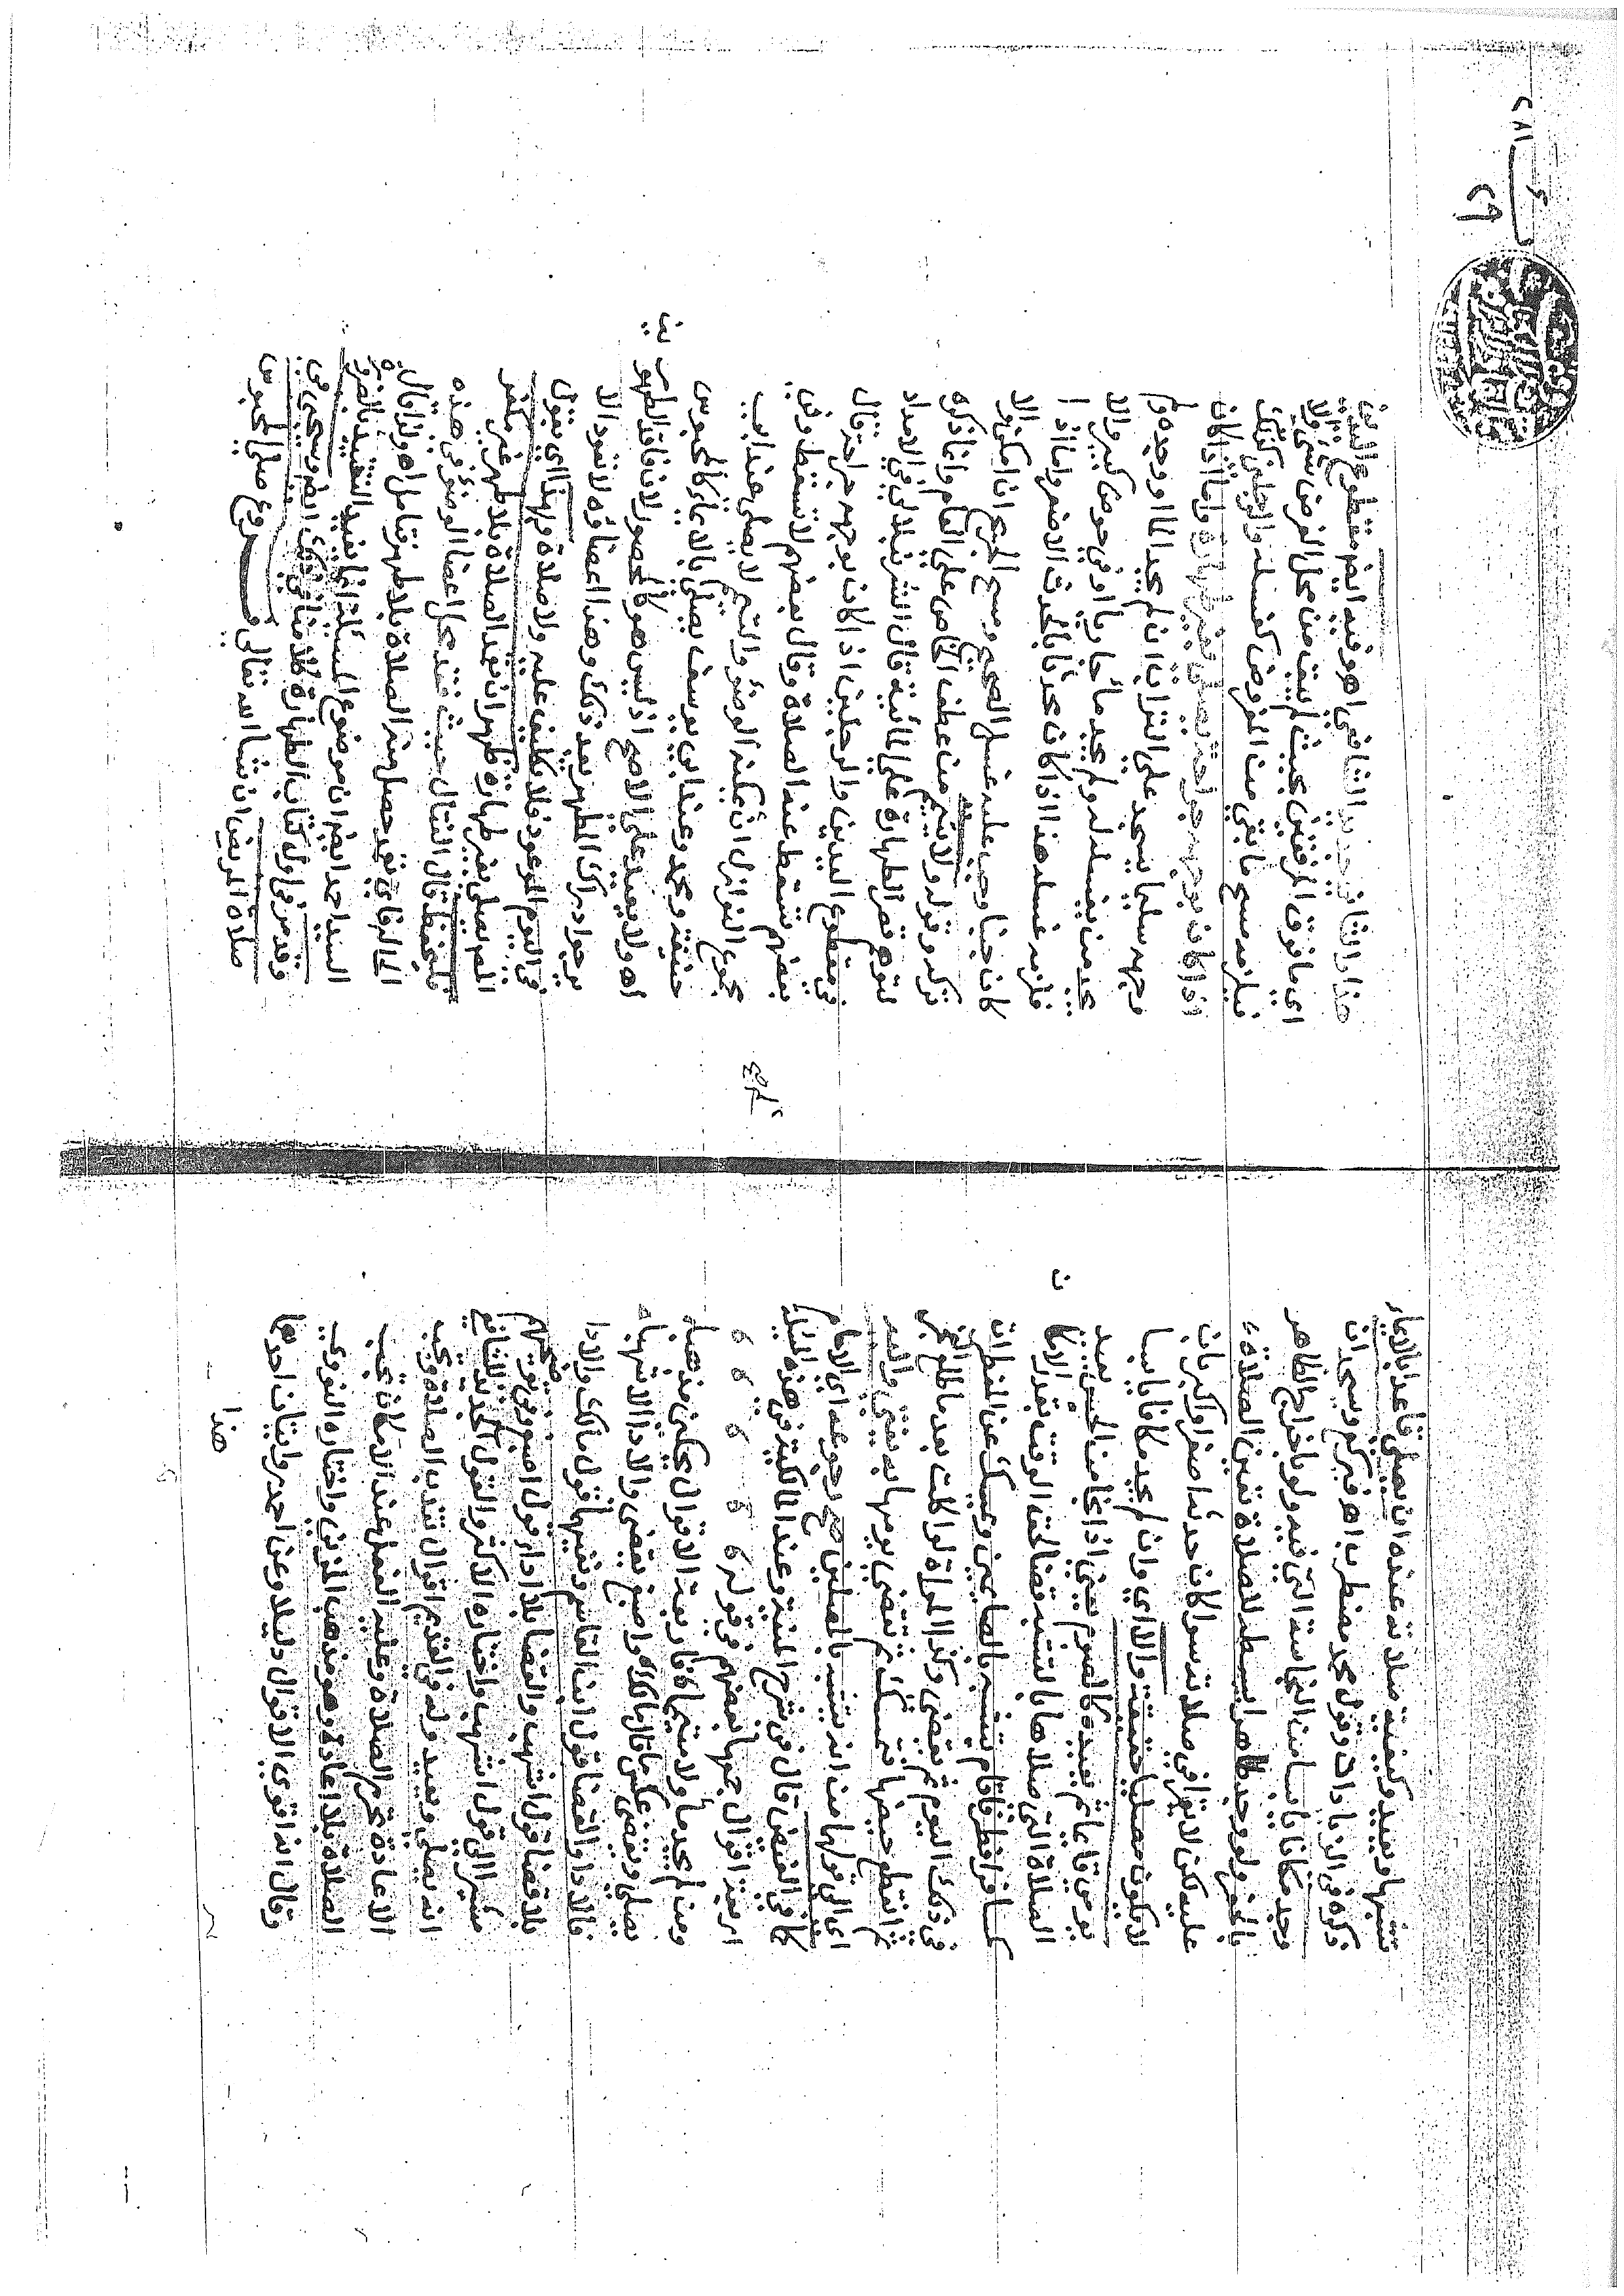 تشبها ويعيد وكيفية صلاته عنده ان يصلي قاعدا بالايماء
ذكره في الزيادات وقول محمد مضطرب اه فيركع ويسجد ان
وجد مكانا يابسا من النجاسة التي فيه ولو باخراج الظاهر
بالحفر ولو وجد طاهر للصلاة تعين الصلاة
عليه لكن لا يقرا في صلاته سوا كان حدثه اصغر او اكبر بان
لا يكون مصليا حقيقة والا اي وان لم يجد مكانا يابسا
يومي قائما ثم يعيده كالصوم يعني اذا نجا من الحبس يعيد
الصلاة التي صلاها بالتشبه قضا لحق الوقت بقدر الامكا ن
كمسافر افطر فاقام يتشبه بالصايمين ويمسك عن المفطرات
في ذلك اليوم ثم يقضي وكذا المراة لو اكلت بعد ما طلع الفجر
ثم انقطع حيضها تتمسك ثم تقضي يومها به يفتى واليه
اي الى قولهما من انه يتشبه بالمصلين صح رجوعه اي الامام
كما في الفيض قال في شرح المنية وعند المالكية في هذه المسئلة
اربعة اقوال جمعها بعضهم في قوله
ومن لم يجد ماء ولا متيمما فاربعة الاقوال يحكين مذهبا
يصلي ويقضي عكس ما قال مالك واصبغ يقضي والاداء لاشهبا
فالادا والقضا قول ابن القاسم ونفيهما قول مالك والادا
بلا قضا قول اشهب والقضا بلا ادا قول اصبغ بعضهم
مشير الى قول اشهب واختاره الاكثر والقول الجديد للشافعي
انه يصلي ويعيد وله في القديم اقوال تندب الصلاة ويجب
الاعادة تحرم الصلاة وعليه الفعل عند الامكان تجب
الصلاة بلا اعادة وهو مذهب المزني واختاره النووي
وقال انه اقوى الاقوال دليلا وعن احمد روايتان احدهما
هذا
هذا والثاني جديد الشافعي اه وفيه ايضا مقطوع اليدين
اي ما فوق المرفقين بحيث لم يبق من محل الفرض شي والا
فيلزمه مسح ما بقي من المفروض كغسله والرجلين كذلك
اذا كان بوجهه جراحة يصلي بغير طهارة واما اذا كان
وجهه سليما يمسحه على التراب ان لم يجد الماء او وجده ولم
يجد من يغسله له ولم يجد ماء جاريا او في حوض كبير والا
فلزمه غسله هذا اذا كان محدثا بالحدث الاصغر واما اذا
كان جنبا وجب عليه غسل الصحيح ومسح الجريح اذا امكن والا
تركه وقوله ولا يتيمم من عطف الخاص على العام وانما ذكره
لتوهم قصر الطهارة على المائية قال الشرنبلالي في الامداد
في مقطوع اليدين والرجلين اذا كان بوجهه جراحة قال
بعضهم تسقط عنه الصلاة وقال بعضهم لا تسقط وفي
مجموع النوازل ان لم يمكنه الوضوء والتيمم لا يصلي عند ابي
حنيفة ومحمد وعند ابي يوسف يصلي بالايماء كالمحبوس
اه ولا يعيد على الاصح اذ ليس هو كالمحصور لان فاقد الطهور
يرجو ادراك المطهر بعد ذلك وهذا اعضاؤه لا تعود الا
في اليوم الموعود ولا تكليف عليه ولا صلاة وبهذا اي بقول
انهم يصلي بغير طهارة ظهر ان تعمد الصلاة بلا طهر غير مكفر
فليحفظ قال الفتال حيث فقد محل اعضا الوضوء في هذه
الحالة فاي تعمد حصل منه الصلاة بلا طهر تامل اه ولذا قال
السيد احمد ايضا ان موضوع المسئلة انما يفيد التقييد بالضرورة
وقد مر في اول كتاب الطهارة كلامنا في ذلك ايضا وسيجيء في
صلاة المريض ان شا الله تعالى فروع صلى المحبوس